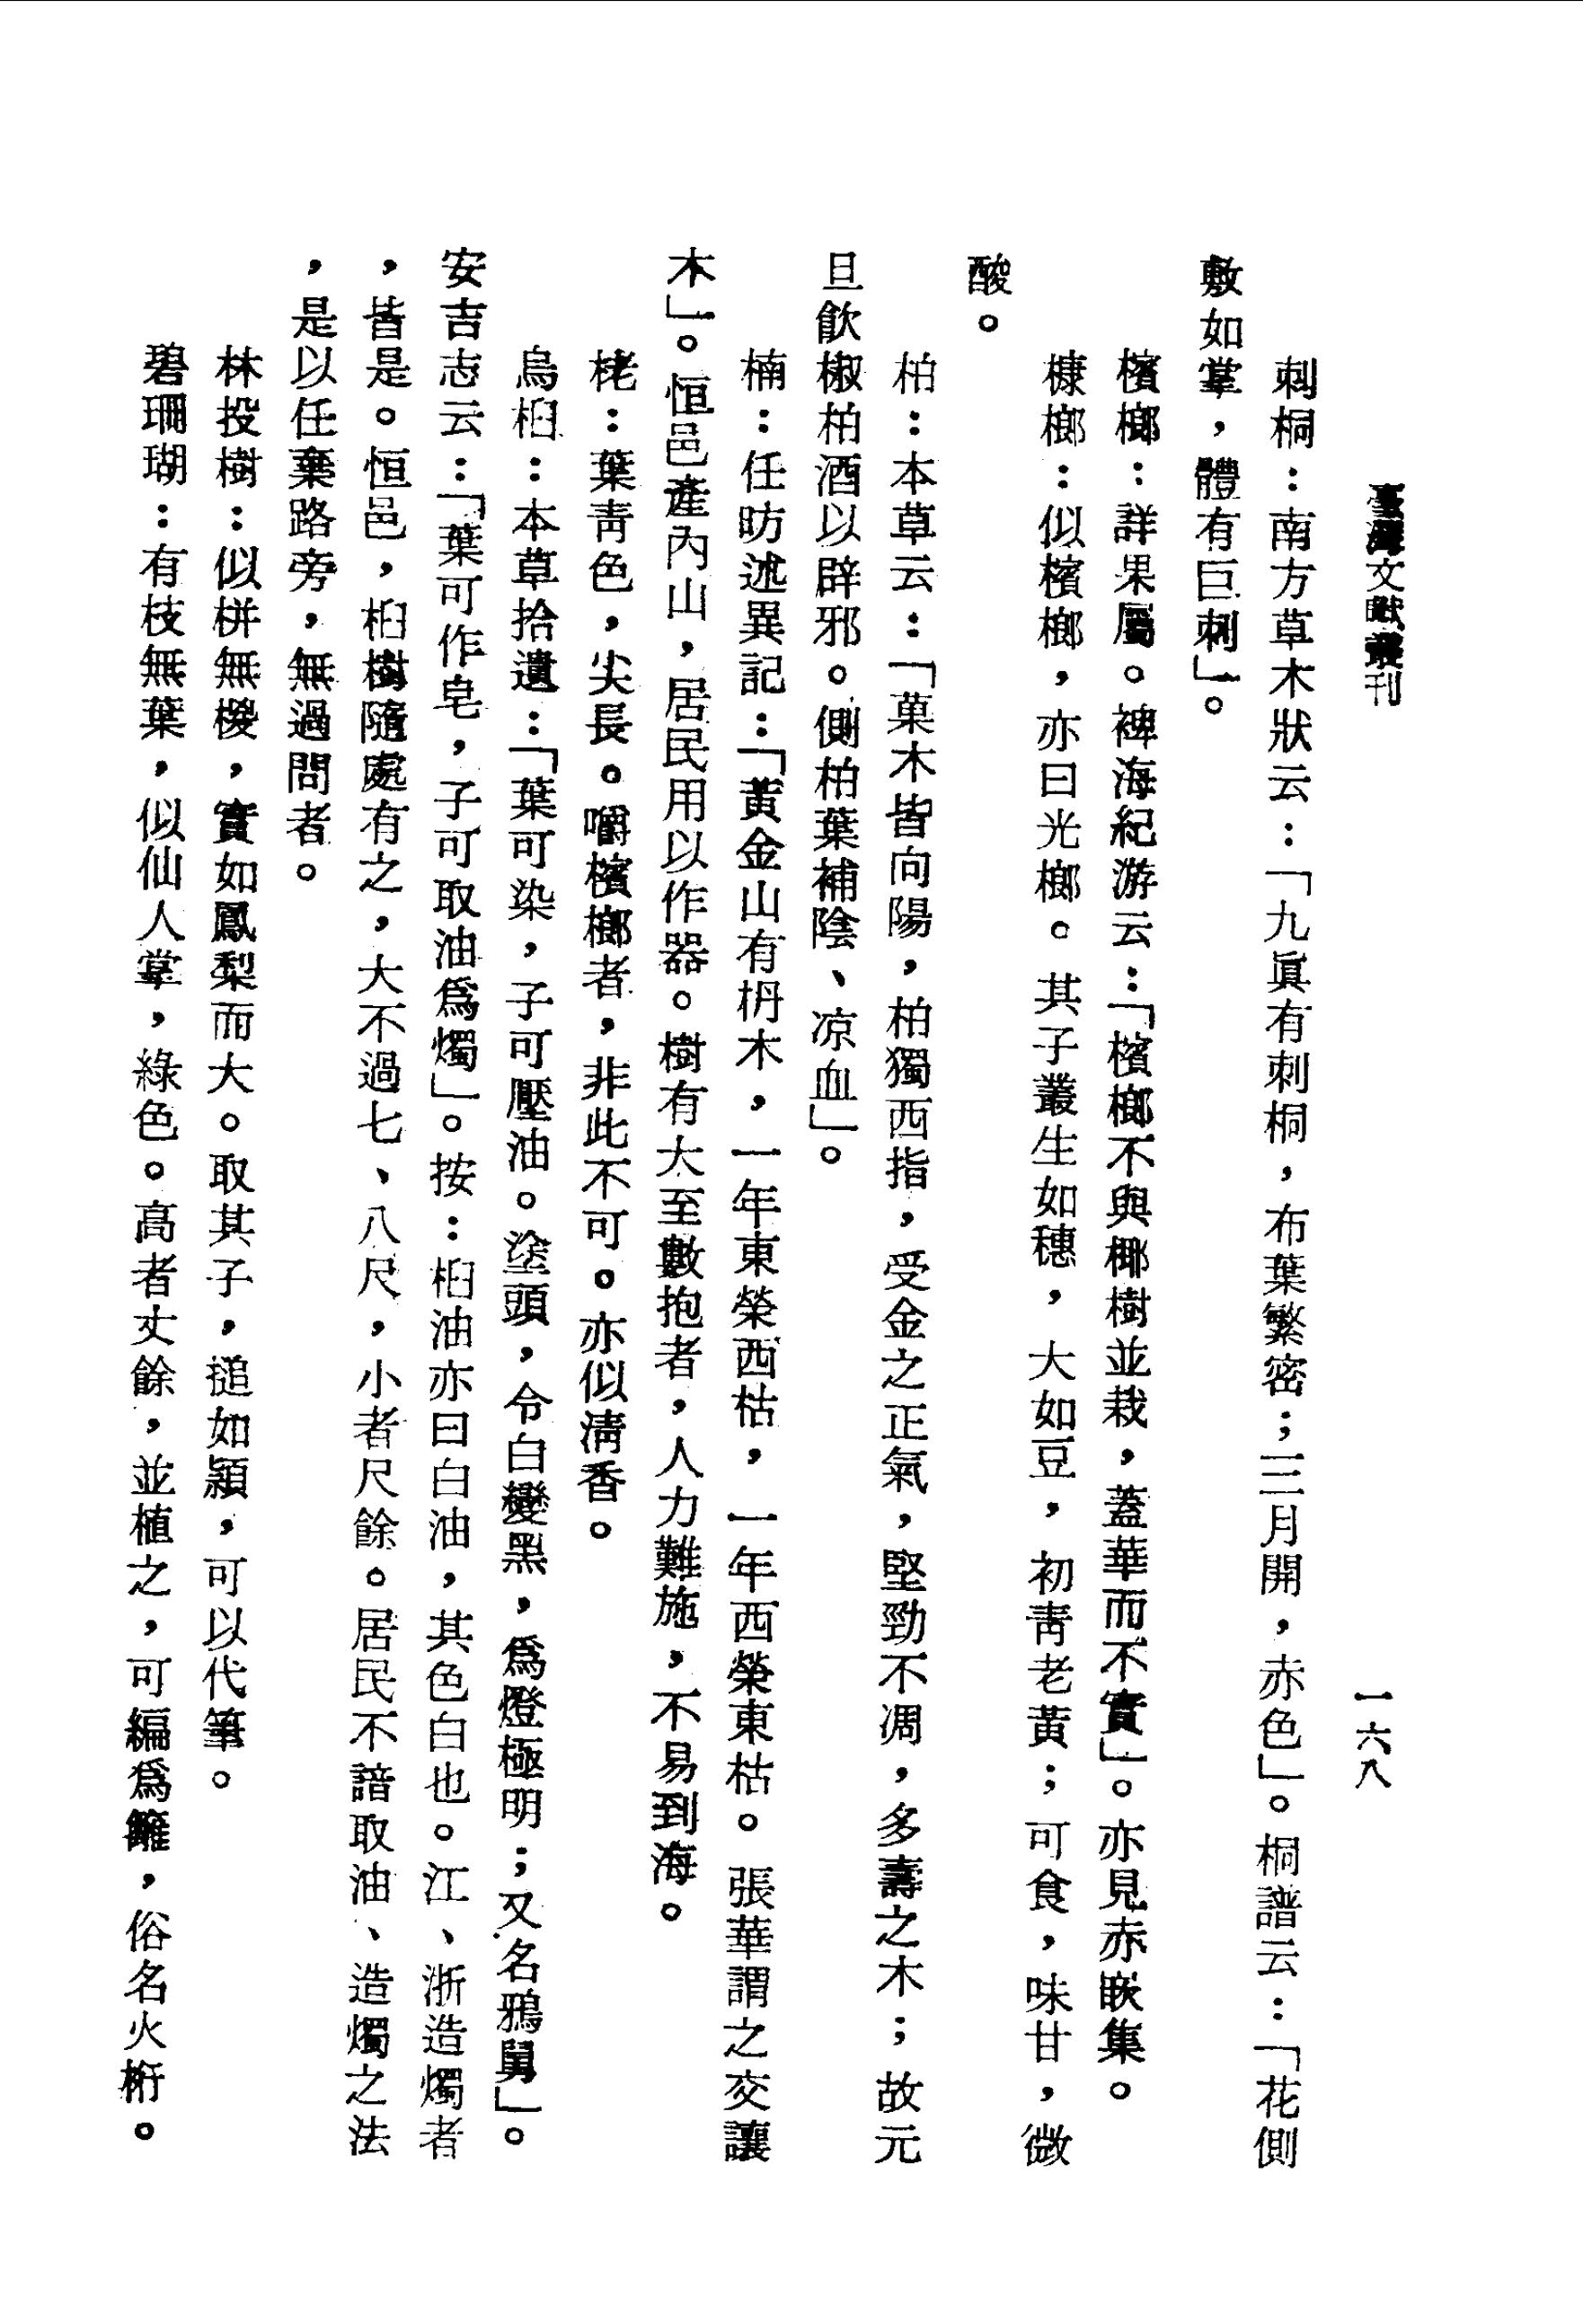 臺灣文獻叢刊
一六八
刺桐：南方草木狀云：「九眞有刺桐，布葉繁密；三月開，赤色」。桐譜云：「花側
敷如掌，體有巨刺」。
檳榔：詳果屬。裨海紀游云：「檳榔不與椰樹並栽，蓋華而不實」。亦見赤嵌集。
槺榔：似檳榔，亦曰光榔。其子叢生如穗，大如豆，初靑老黃；可食，味甘，微
酸。
柏：本草云：「菓木皆向陽，柏獨西指，受金之正氣，堅勁不凋，多壽之木；故元
旦飮椒柏酒以辟邪。側柏葉補陰、凉血」。
楠：任昉述異記：「黃金山有枬木，一年東榮西枯，一年西榮東枯。張華謂之交讓
木」。恒邑產內山，居民用以作器。樹有大至數抱者，人力難施，不易到海。
栳：葉靑色，尖長。嚼檳榔者，非此不可。亦似淸香。
烏桕：本草拾遺：「葉可染，子可壓油。塗頭，令白變黑，爲燈極明；又名鴉舅」。
安吉志云：「葉可作皂，子可取油爲燭」。按：桕油亦曰白油，其色白也。江、浙造燭者
，皆是。恒邑，桕樹隨處有之，大不過七、八尺，小者尺餘。居民不諳取油、造燭之法
，是以任棄路旁，無過問者。
林投樹：似栟無椶，實如鳳梨而大。取其子，搥如穎，可以代筆。
碧珊瑚：有枝無葉，似仙人掌，綠色。高者丈餘，並植之，可編爲籬，俗名火桁。